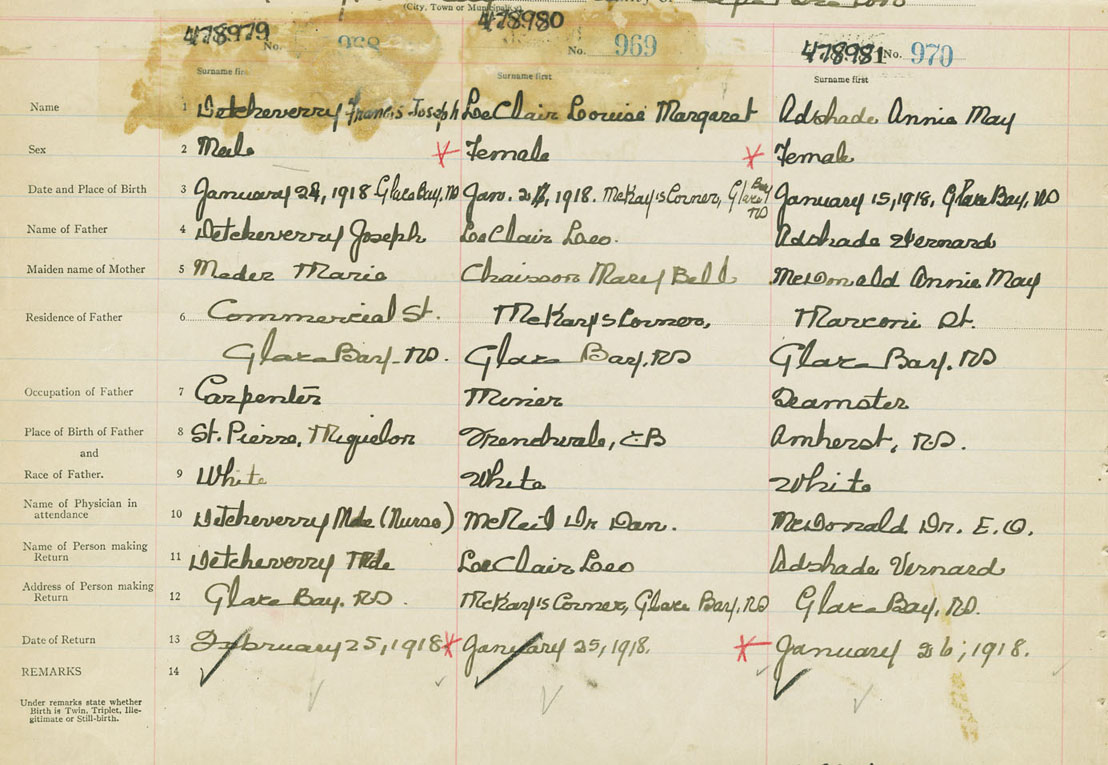 (City, Town or Municipality)
478979 No. 968 478980 No. 969 478981 No. 970
Surname first Surname first Surname first
Name 1 Detcheverry Francis Joseph LeClair Louise Margaret Adshade Annie May
Sex 2 Male Female Female
Date and Place of Birth 3 January 1918 Glace Bay, NS Jan. 1918. McKay's Corner, Glace Bay NS January 15, 1918, Glace Bay, NS
Name of Father 4 Detcheverry Joseph LeClair Leo. Adshade Vernard
Maiden name of Mother 5 Meder Marie Chaisson Mary Bell McDonald Annie May
Residence of Father 6 Commercial St. McKay's Corner, Marconi St.
Glace Bay, NS. Glace Bay, NS Glace Bay, NS
Occupation of Father 7 Carpenter Miner Teamster
Place of Birth of Father 8 St. Pierre, Miquelon Frenchvale, CB Amherst, NS.
and
Race of Father. 9 White White White
Name of Physician in attendance 10 Detcheverry Mde (Nurse) McNeil Dr Dan. McDonald Dr. E. O.
Name of Person making Return 11 Detcheverry Mde LeClair Leo Adshade Vernard
Address of Person making Return 12 Glace Bay, NS. McKay's Corner, Glace Bay, NS Glace Bay, NS.
Date of Return 13 February 25, 1918 January 25, 1918. January 26, 1918.
REMARKS 14
Under remarks state whether
Birth is Twin, Triplet, Ille-
gitimate or Still-birth.